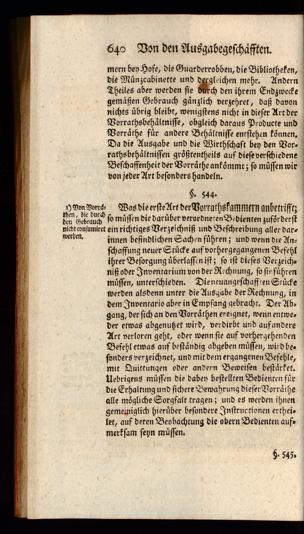 640 Von den Ausgabegeschäfften.
mern bey Hofe, die Guarderroben, die Bibliotheken,
die Münzcabinette und dergleichen mehr. Andern
Theiles aber werden sie durch den ihrem Endzwecke
gemäßen Gebrauch gänzlich verzehret, daß davon
nichts übrig bleibt, wenigstens nicht in dieser Art der
Vorrathsbehältnisse, obgleich daraus Producte und
Vorräthe für andere Behältnisse entstehen können.
Da die Ausgabe und die Wirthschaft bey den Vor-
rathsbehältnissen größtentheils auf diese verschiedene
Beschaffenheit der Vorräthe ankömmt; so müssen wir
von jeder Art besonders handeln.
§. 544.
1) Von Vorrä-
then, die durch
den Gebrauch
nicht consumiret
werden.
Was die erste Art der Vorrathskammern anbetrifft;
so müssen die darüber verordneten Bedienten zuförderst
ein richtiges Verzeichniß und Beschreibung aller dar-
innen befindlichen Sachen führen; und wenn die An-
schaffung neuer Stücke auf vorhergegangenen Befehl
ihrer Besorgung überlassen ist; so ist dieses Verzeich-
niß oder Inventarium von der Rechnung, so sie führen
müssen, unterschieden. Die neuangeschafften Stücke
werden alsdenn unter die Ausgabe der Rechnung, in
dem Inventario aber in Empfang gebracht. Der Ab-
gang, der sich an den Vorräthen ereignet, wenn entwe-
der etwas abgenutzet wird, verdirbt und auf andere
Art verloren geht, oder wenn sie auf vorhergehenden
Befehl etwas auf beständig abgeben müssen, wird be-
sonders verzeichnet, und mit dem ergangenen Befehle,
mit Quittungen oder andern Beweisen bestärket.
Uebrigens müssen die dabey bestellten Bedienten für
die Erhaltung und sichere Bewahrung dieser Vorräthe
alle mögliche Sorgfalt tragen; und es werden ihnen
gemeiniglich hierüber besondere Instructionen erthei-
let, auf deren Beobachtung die obern Bedienten auf-
merksam seyn müssen.
§. 545.